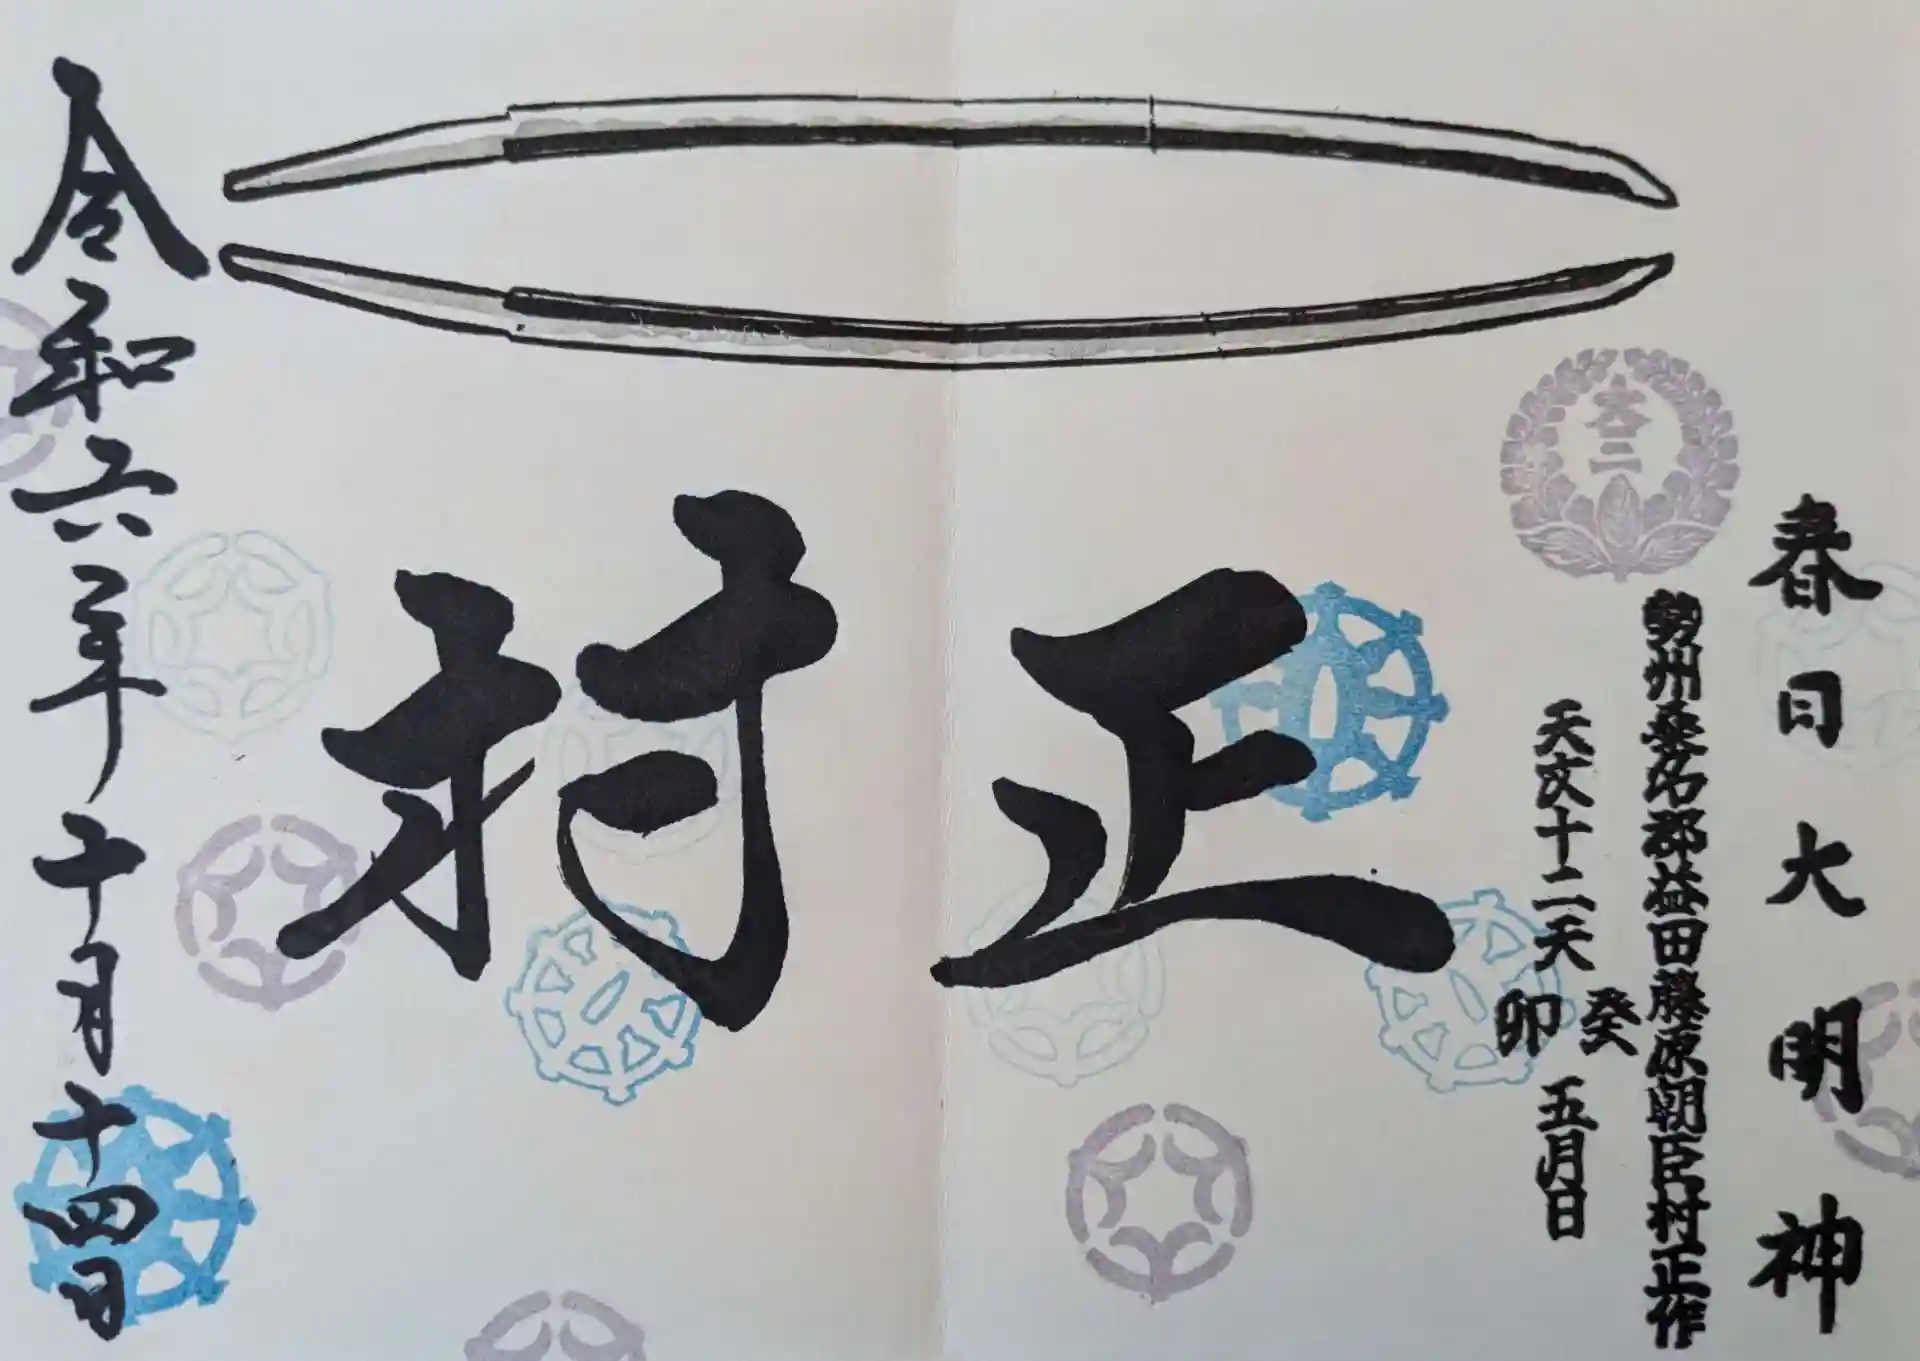 春日大明神
勢州桑名郡益田藤原朝臣村正作
天文十二天癸卯五月日
正
村
令和六年十月十四日